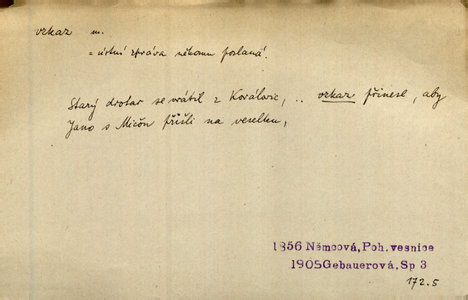 vzkaz m.
= ústní zpráva někomu poslaná.
Starý drotar se vrátil z Korálovic, .. vzkaz přinesl, aby
Jano s Mičón přišli na veselku,
1856 Němcová, Poh. vesnice
1905 Gebauerová, Sp 3
172.5